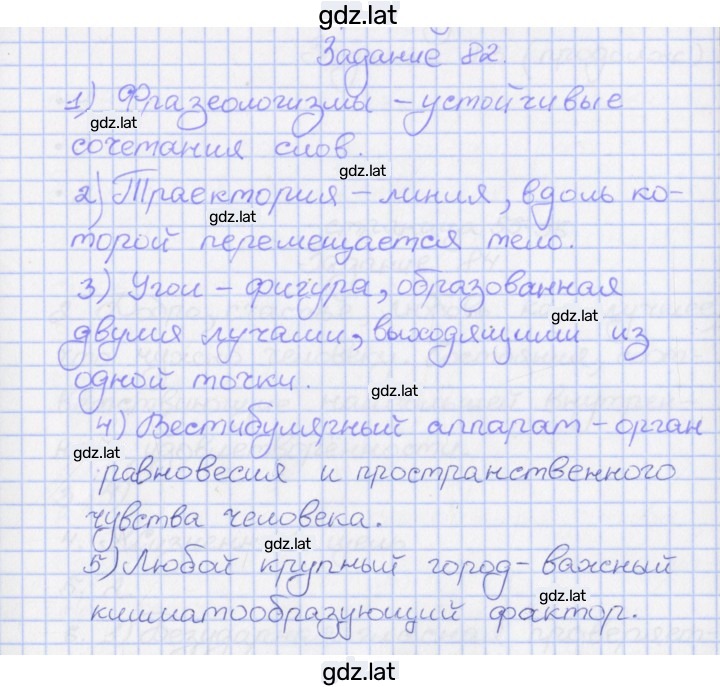 gdz.lat
Задание 82.
1) Фразеологизмы – устойчивые
gdz.lat
сочетания слов.
gdz.lat
2) Траектория – линия, вдоль ко-
gdz.lat
торой перемещается тело.
3) Угол – фигура, образованная
gdz.lat
двумя лучами, выходящими из
одной точки.
gdz.lat
4) Вестибулярный аппарат – орган
gdz.lat
равновесия и пространственного
чувства человека.
gdz.lat
5) Любой крупный город – важный
gdz.lat
климатообразующий фактор.
gdz.lat